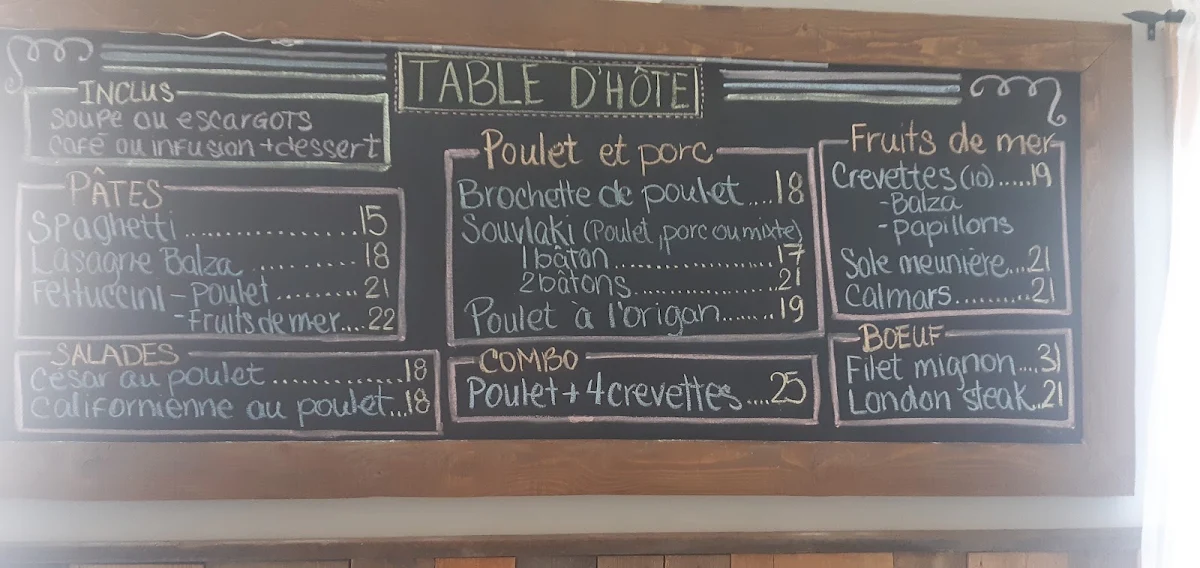 TABLE D'HÔTE
INCLUS
soupe ou escargots
café ou infusion + dessert
PÂTES
Spaghetti..................15
Lasagne Balza ..........18
Fettuccini - poulet.........21
- Fruits de mer....22
SALADES
César au poulet..............18
Californienne au poulet...18
Poulet et porc
Brochette de poulet....18
Souvlaki (Poulet, porc ou mixte)
1 bâton.......................17
2 bâtons....................21
Poulet à l'origan.......19
COMBO
Poulet + 4 crevettes....25
Fruits de mer
Crevettes (10).....19
- Balza
- papillons
Sole meunière...21
Calmars.........21
BOEUF
Filet mignon....31
London steak..21